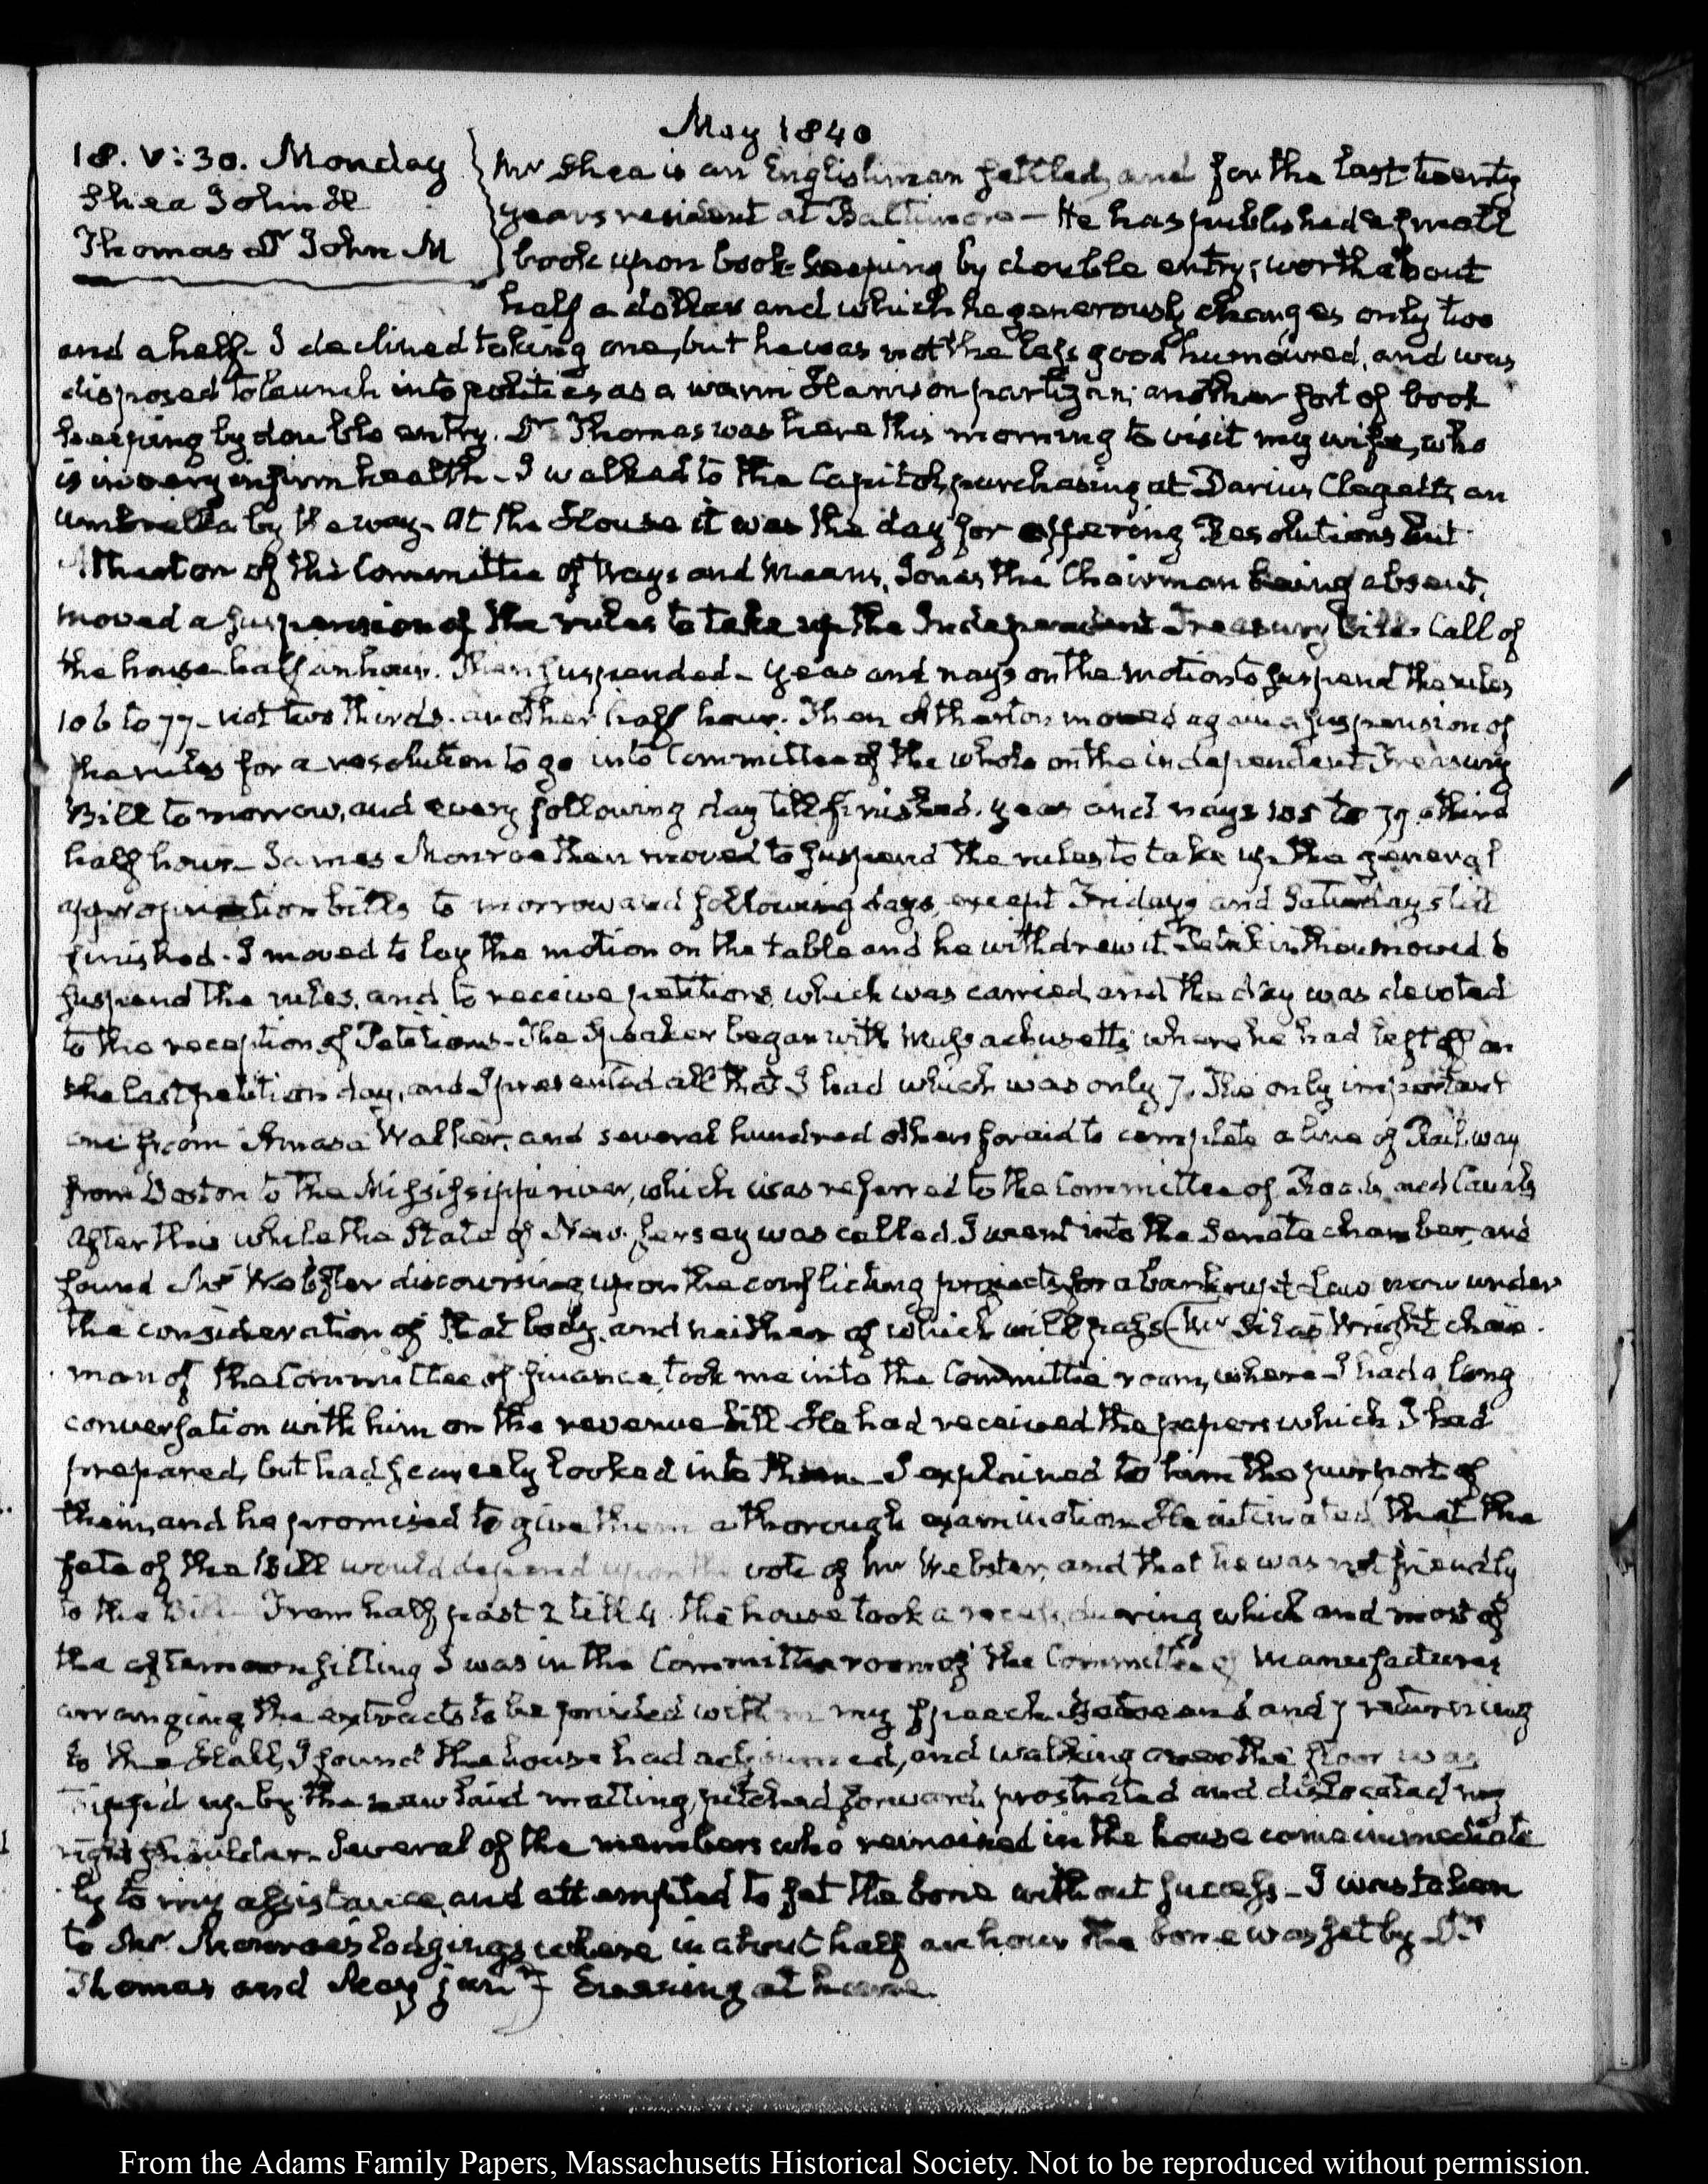 May 1840
18. V:30. Monday
Shea John H
Thomas Dr John M
Mr Shea is an Englishman settled, and for the last twenty
years resident at Baltimore — He has published a small
book upon book-keeping by double entry; worth about
half a dollar and which he generously charges only two
and a half. I declined taking one, but he was not the less good humoured, and was
disposed to launch into politics as a warm Harrison partizan; another sort of book
keeping by double entry. Dr Thomas was here this morning to visit my wife, who
is in very infirm health. I walked to the Capitol, purchasing at Darius Clagett's an
umbrella by the way. At the House it was the day for offering Resolutions but
Atherton of the Committee of Ways and Means, Jones the Chairman being absent,
moved a suspension of the rules to take up the Independent Treasury Bill. Call of
the house half an hour. Then suspended. Yeas and nays on the motion to suspend the rules
106 to 77 — not two thirds. another half hour. Then Atherton moved again a suspension of
the rules for a resolution to go into Committee of the whole on the independent Treasury
Bill to morrow, and every following day till finished. yeas and nays 105 to 79 a third
half hour — James Monroe then moved to suspend the rules to take up the general
appropriation bills to morrow and following days, except Fridays and Saturdays till
finished. I moved to lay the motion on the table and he withdrew it. then moved to
suspend the rules, and to receive petitions, which was carried, and the day was devoted
to the reception of Petitions. The Speaker began with Massachusetts where he had left off on
the last petition day, and I presented all that I had which was only 7. The only important
one from Amasa Walker, and several hundred others for aid to complete a line of Railway
from Boston to the Mississippi river, which was referred to the Committee of Roads and Canals
After this while the State of New-Jersey was called I went into the Senate chamber, and
found Mr Webster discoursing upon the conflicting projects for a bankrupt-Law now under
the consideration of that body, and neither of which will pass (Mr Silas Wright chair-
man of the Committee of finance, took me into the Committee room, where I had a long
conversation with him on the revenue bill. He had received the papers which I had
prepared, but had scarcely looked into them. I explained to him the purport of
them, and he promised to give them a thorough examination. He intimated that the
fate of the Bill would depend upon the vote of Mr Webster, and that he was not friendly
to the Bill. From half past 2 till 4 the house took a recess, during which and most of
the afternoon sitting I was in the Committee room of the Committee of Manufactures
arranging the extracts to be printed with my speech. and 7 returning
to the Hall, I found the house had adjourned, and walking over the floor was
tripp'd up by the new laid matting, pitched forward, prostrated and dislocated my
right shoulder. Several of the members who remained in the house came immediate-
ly to my assistance, and attempted to set the bone without success — I was taken
to Mr Monroe's lodgings where in about half an hour the bone was set by Drs
Thomas and May junr) Evening at home.
From the Adams Family Papers, Massachusetts Historical Society. Not to be reproduced without permission.